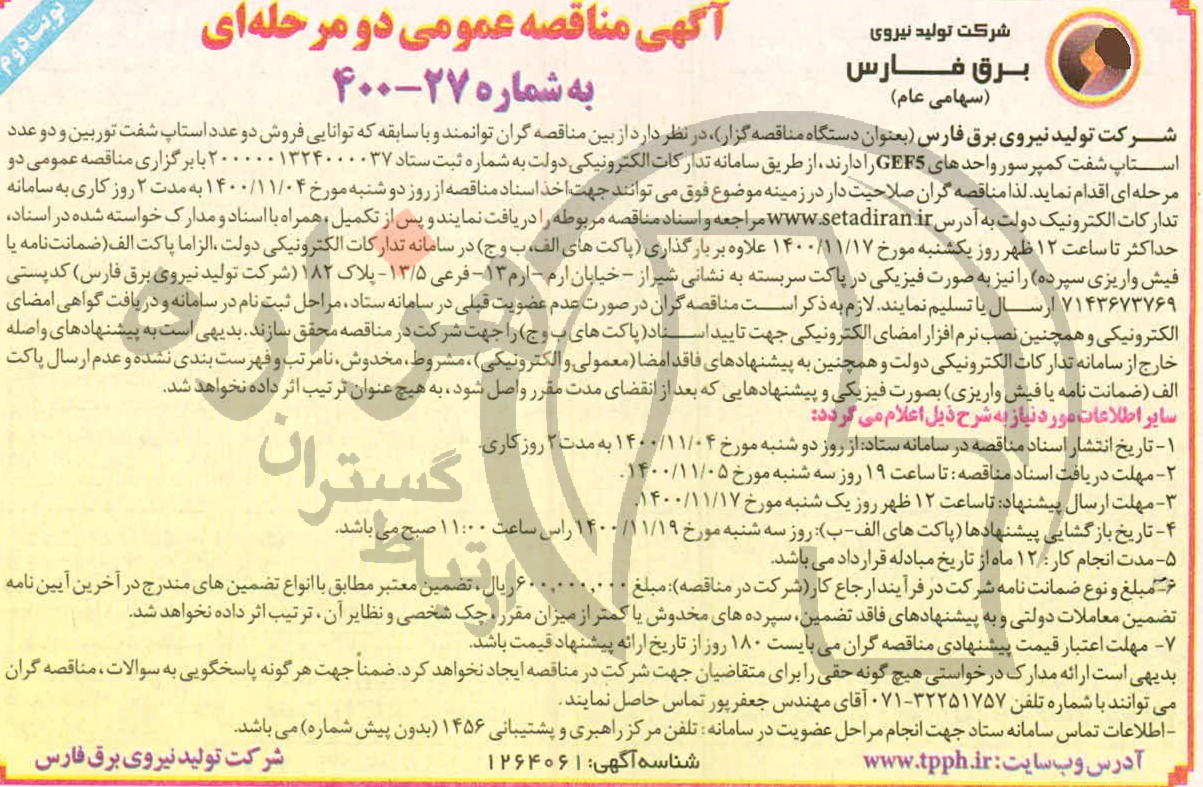 نوبت دوم
آگهی مناقصه عمومی دو مرحله‌ای
به شماره ۲۷-۴۰۰
شرکت تولید نیروی
برق فارس
(سهامی عام)
شرکت تولید نیروی برق فارس (بعنوان دستگاه مناقصه گزار)، در نظر دارد از بین مناقصه گران توانمند و با سابقه که توانایی فروش دو عدد استاپ شفت توربین و دو عدد
استاپ شفت کمپرسور واحدهای GEF5 را دارند، از طریق سامانه تدارکات الکترونیکی دولت به شماره ثبت ستاد ۲۰۰۰۰۰۱۳۲۴۰۰۰۰۳۷ با برگزاری مناقصه عمومی دو
مرحله‌ای اقدام نماید. لذا مناقصه گران صلاحیت دار در زمینه موضوع فوق می توانند جهت اخذ اسناد مناقصه از روز دو شنبه مورخ ۱۴۰۰/۱۱/۰۴ به مدت ۲ روز کاری به سامانه
تدارکات الکترونیک دولت به آدرس www.setadiran.ir مراجعه و اسناد مناقصه مربوطه را دریافت نمایند و پس از تکمیل، همراه با اسناد و مدارک خواسته شده در اسناد،
حداکثر تا ساعت ۱۲ ظهر روز یکشنبه مورخ ۱۴۰۰/۱۱/۱۷ علاوه بر بارگذاری (پاکت های الف، ب و ج) در سامانه تدارکات الکترونیکی دولت، الزاما پاکت الف (ضمانت‌نامه یا
فیش واریزی سپرده) را نیز به صورت فیزیکی در پاکت سربسته به نشانی شیراز - خیابان ارم - ارم ۱۳- فرعی ۱۳/۵- پلاک ۱۸۲ (شرکت تولید نیروی برق فارس) کدپستی
۷۱۴۳۶۷۳۷۶۹ ارسال یا تسلیم نمایند. لازم به ذکر است مناقصه گران در صورت عدم عضویت قبلی در سامانه ستاد، مراحل ثبت نام در سامانه و دریافت گواهی امضای
الکترونیکی و همچنین نصب نرم افزار امضای الکترونیکی جهت تایید اسناد (پاکت های ب و ج) را جهت شرکت در مناقصه محقق سازند. بدیهی است به پیشنهادهای واصله
خارج از سامانه تدارکات الکترونیکی دولت و همچنین به پیشنهادهای فاقد امضا (معمولی و الکترونیکی)، مشروط، مخدوش، نامرتب و فهرست بندی نشده و عدم ارسال پاکت
الف (ضمانت نامه یا فیش واریزی) بصورت فیزیکی و پیشنهادهایی که بعد از انقضای مدت مقرر واصل شود، به هیچ عنوان ترتیب اثر داده نخواهد شد.
سایر اطلاعات مورد نیاز به شرح ذیل اعلام می گردد:
۱- تاریخ انتشار اسناد مناقصه در سامانه ستاد: از روز دو شنبه مورخ ۱۴۰۰/۱۱/۰۴ به مدت ۲ روز کاری.
۲- مهلت دریافت اسناد مناقصه: تا ساعت ۱۹ روز سه شنبه مورخ ۱۴۰۰/۱۱/۰۵.
۳- مهلت ارسال پیشنهاد: تاساعت ۱۲ ظهر روز یک شنبه مورخ ۱۴۰۰/۱۱/۱۷.
۴- تاریخ بازگشایی پیشنهادها (پاکت های الف-ب): روز سه شنبه مورخ ۱۴۰۰/۱۱/۱۹ راس ساعت ۱۱:۰۰ صبح می باشد.
۵- مدت انجام کار: ۱۲ ماه از تاریخ مبادله قرارداد می باشد.
۶- مبلغ و نوع ضمانت نامه شرکت در فرآیند ارجاع کار (شرکت در مناقصه): مبلغ ۶۰۰,۰۰۰,۰۰۰ ریال، تضمین معتبر مطابق با انواع تضمین های مندرج در آخرین آیین نامه
تضمین معاملات دولتی و به پیشنهادهای فاقد تضمین، سپرده های مخدوش یا کمتر از میزان مقرر، چک شخصی و نظایر آن، ترتیب اثر داده نخواهد شد.
۷- مهلت اعتبار قیمت پیشنهادی مناقصه گران می بایست ۱۸۰ روز از تاریخ ارائه پیشنهاد قیمت باشد.
بدیهی است ارائه مدارک درخواستی هیچ گونه حقی را برای متقاضیان جهت شرکت در مناقصه ایجاد نخواهد کرد. ضمناً جهت هرگونه پاسخگویی به سوالات، مناقصه گران
می توانند با شماره تلفن ۳۲۲۵۱۷۵۷-۰۷۱ آقای مهندس جعفرپور تماس حاصل نمایند.
-اطلاعات تماس سامانه ستاد جهت انجام مراحل عضویت در سامانه: تلفن مرکز راهبری و پشتیبانی ۱۴۵۶ (بدون پیش شماره) می باشد.
آدرس وب سایت: www.tpph.ir
شناسه آگهی: ۱۲۶۴۰۶۱
شرکت تولید نیروی برق فارس
هزاره
گستران
ارتباط